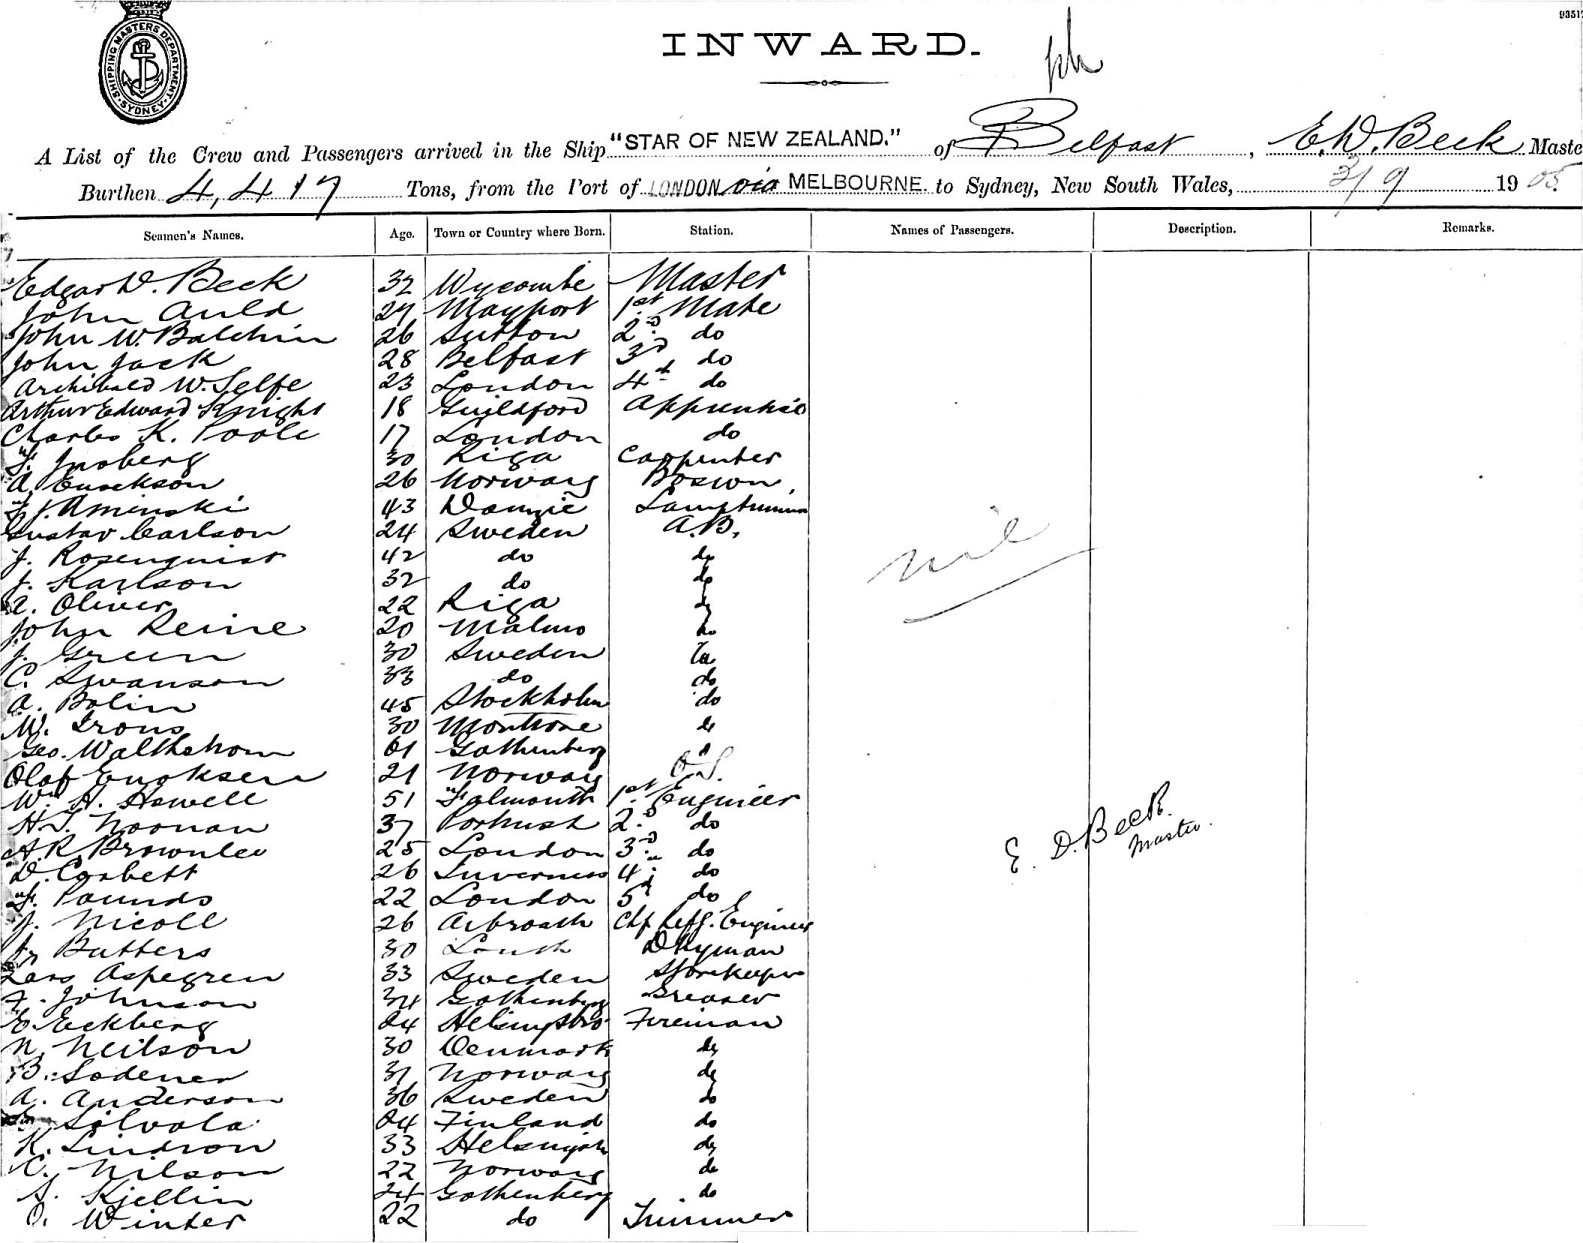 93517
SHIPPING MASTERS DEPARTMENT SYDNEY
INWARD.
A List of the Crew and Passengers arrived in the Ship "STAR OF NEW ZEALAND." of Belfast, E.D. Beck Maste
Burthen 4,417 Tons, from the Port of LONDON via MELBOURNE. to Sydney, New South Wales, 3/9 1905
Seamen's Names. Age. Town or Country where Born. Station. Names of Passengers. Description. Remarks.
Edgar D. Beck 32 Wycombe Master
John Auld 27 Mayport 1st Mate
John W. Balchin 26 Sutton 2nd do
John Jack 28 Belfast 3rd do
Archibald W. Selfe 23 London 4th do
Arthur Edward Knight 18 Guildford Apprentice
Charles K. Poole 17 London do
30 Riga Carpenter
A. 26 Norway Bosun
43 Danzic Lamptrimmer
Gustav Carlson 24 Sweden A.B.
J. Rosenquist 42 do do
J. Karlson 32 do do
A. Oliver 22 Riga do
John Reine 20 Malmo do
J. Green 30 Sweden do
C. Swanson 33 do do
A. Bolin 45 Stockholm do
W. Irons 30 Montrose do
Geo. 61 Gothenberg
Olof 21 Norway O.S.
Wm. H. Howell 51 Falmouth 1st Engineer
H.T. Noonan 37 Portrush 2nd do
A.R. Brownlee 25 London 3rd do
D. Corbett 26 Inverness 4th do
F. Pounds 22 London 5th do
J. Nicoll 26 Arbroath Chf Refg. Engineer
J. Butters 30 Louth Dkyman
Lars Aspegren 33 Sweden Storekeeper
F. Johnson 34 Gothenberg Greaser
E. Eckberg 24 Fireman
N. Neilson 30 Denmark do
B. Sodener 31 Norway do
A. Anderson 36 Sweden do
Silvola 24 Finland do
K. Lindron 33 do
C. Nilson 22 Norway do
A. Kjellin 24 Gothenberg do
O. Winter 22 do Trimmer
nil
E. D. Beck.
Master.